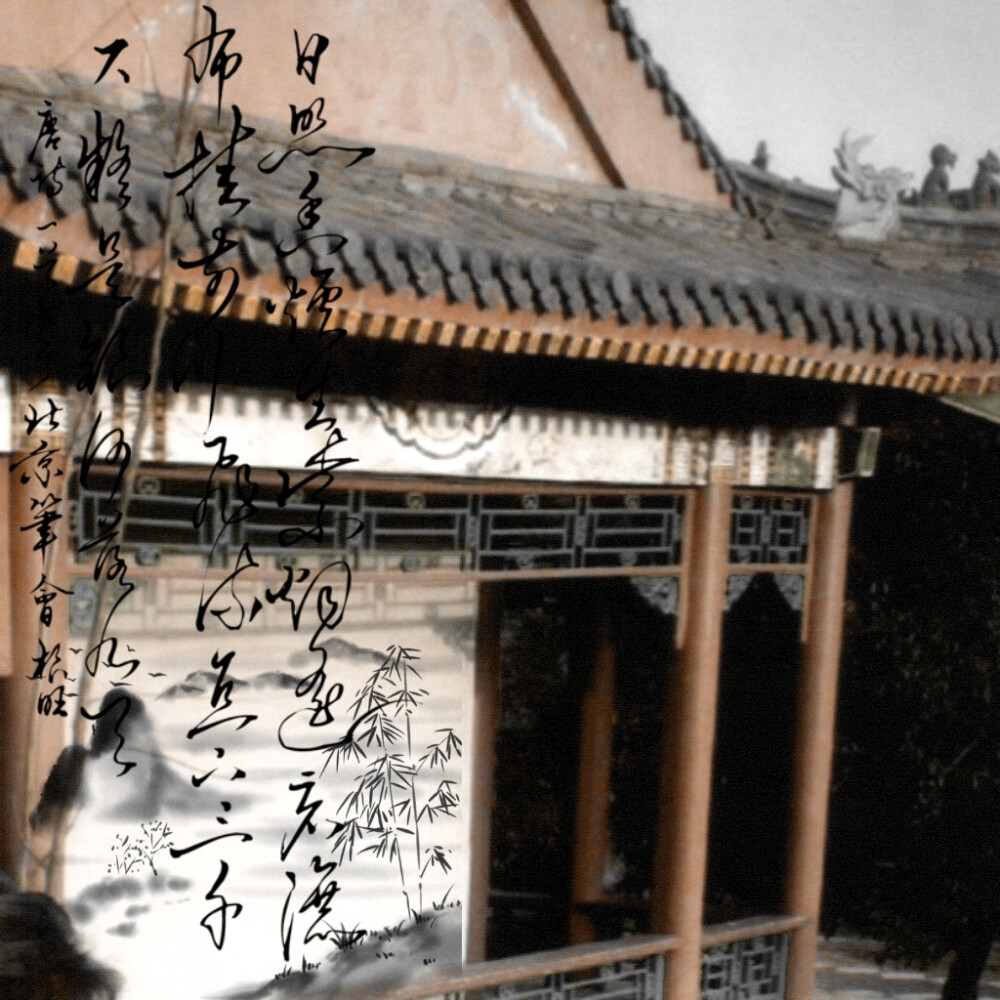 日照香爐生紫烟遥看瀑
布挂前川飛流直下三千
尺疑是銀河落九天
唐詩一首 北京筆會